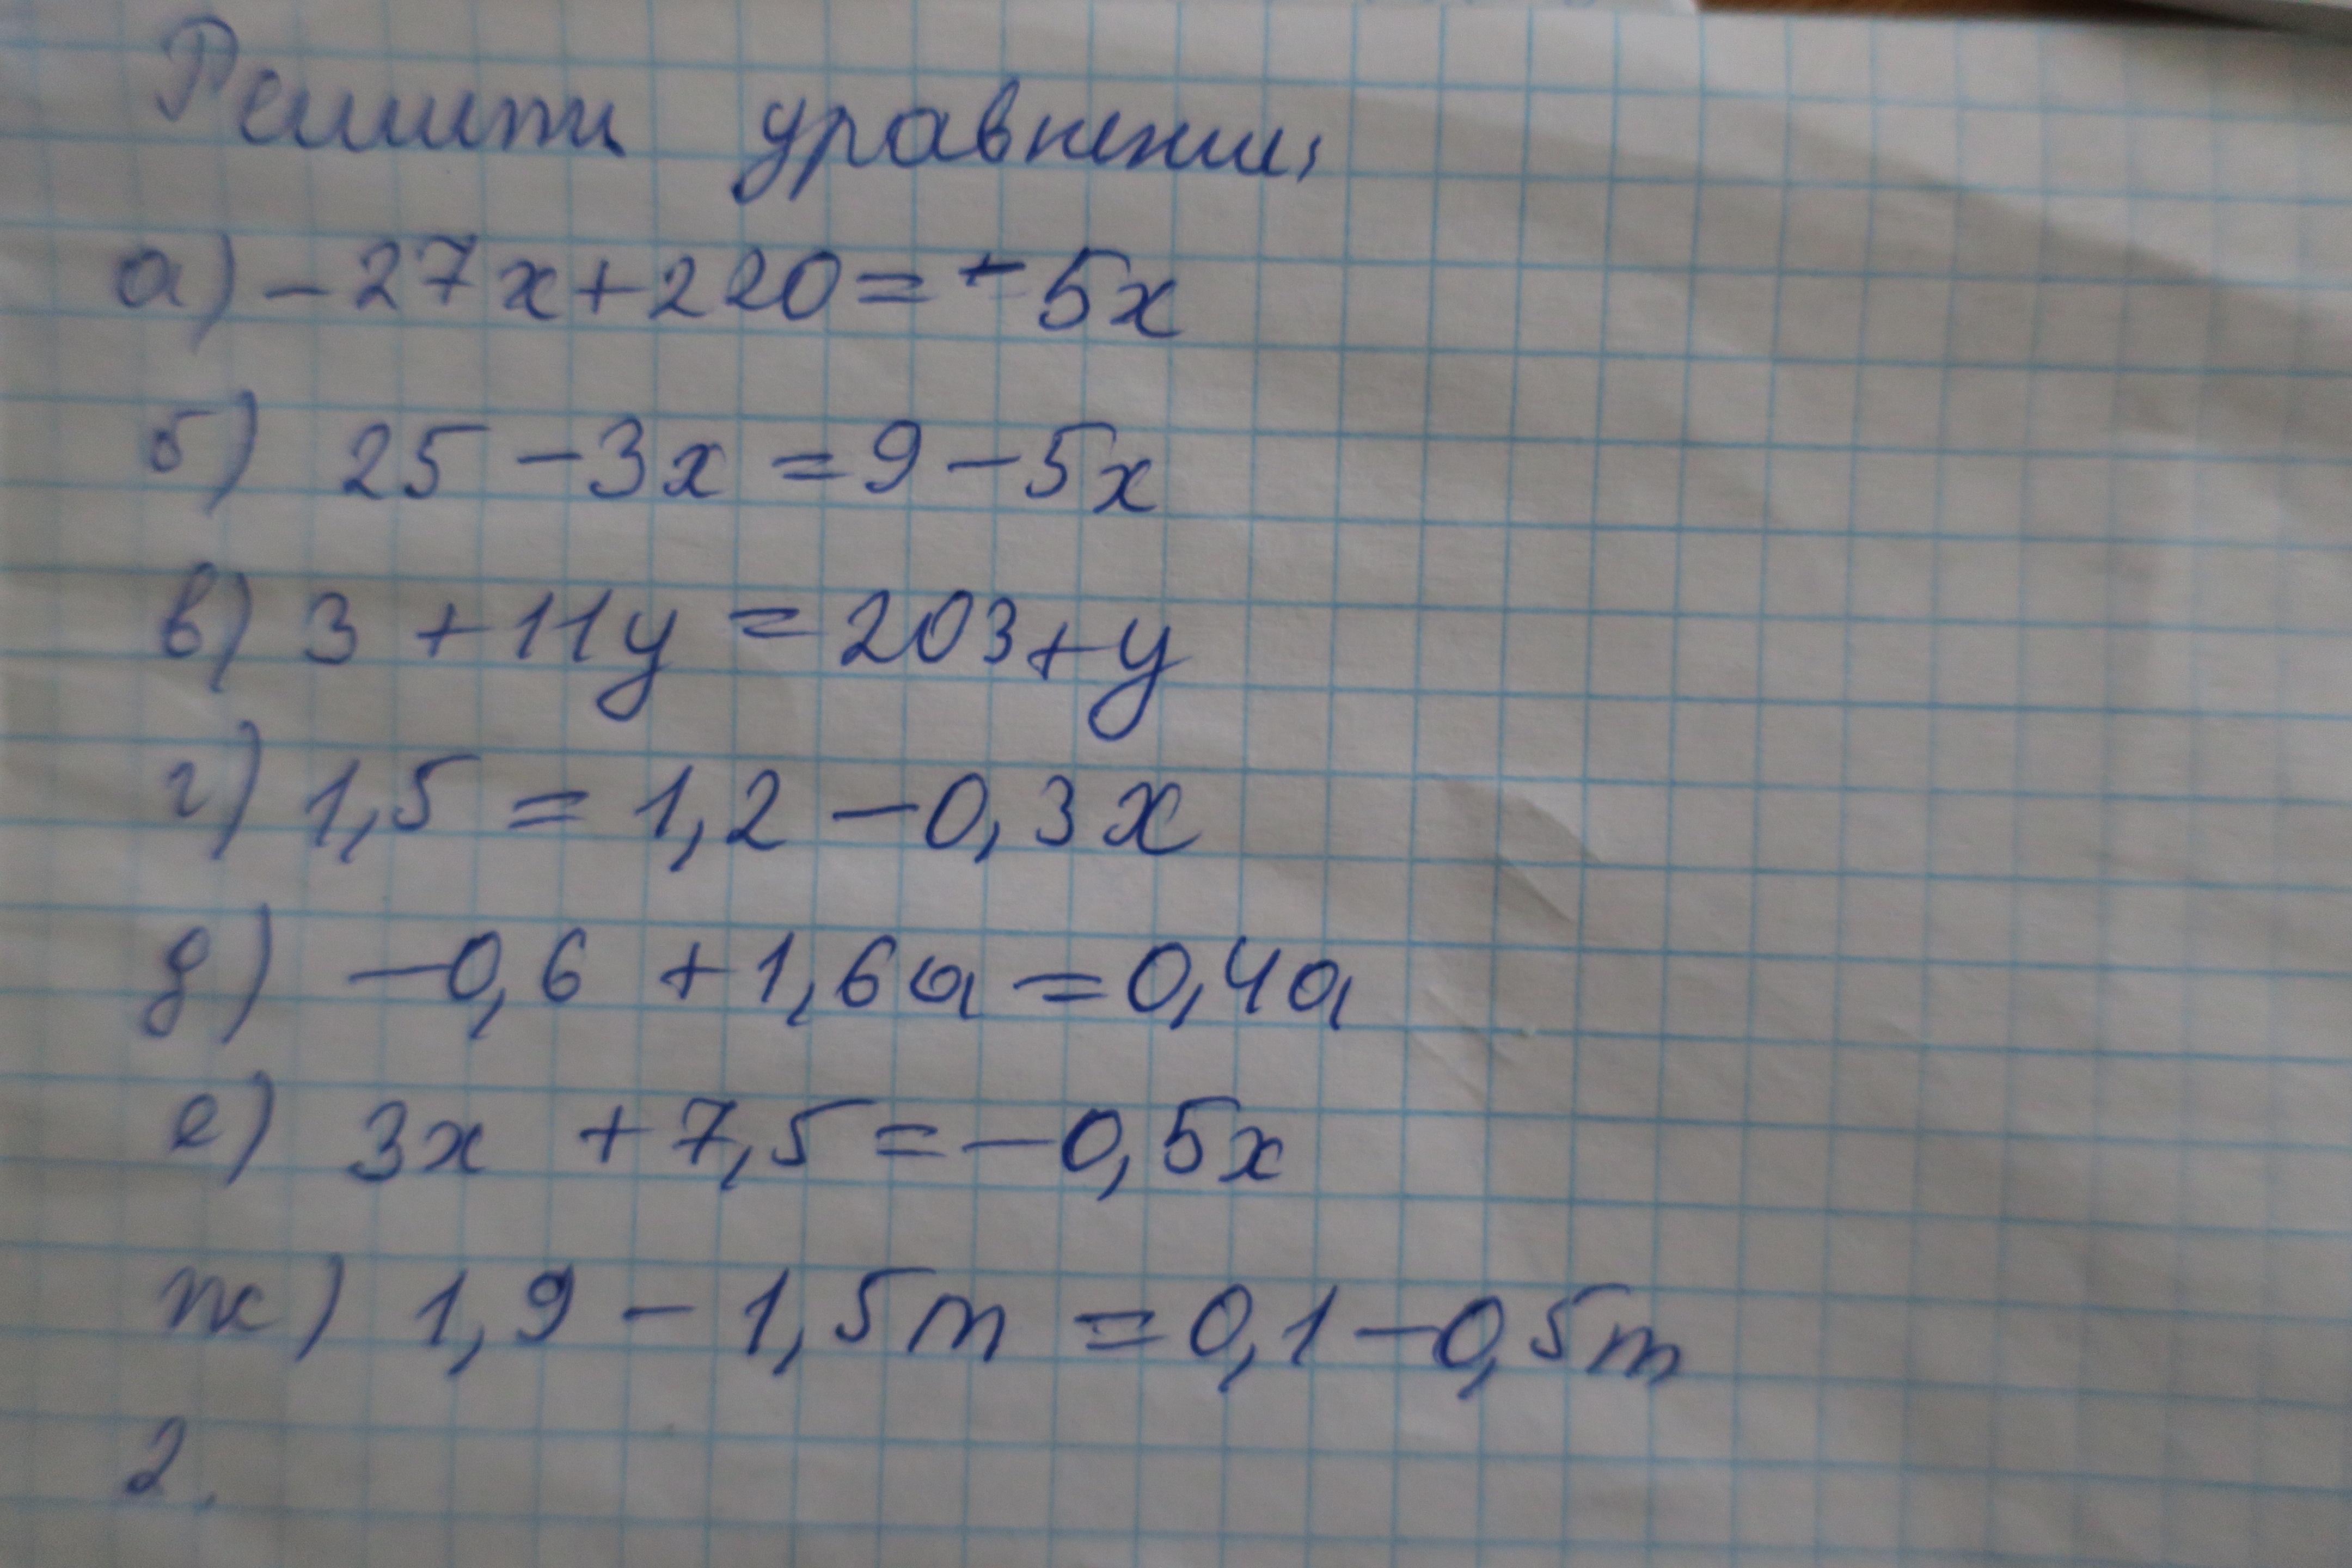 Решити уравнения
а) -27x+220=-5x
б) 25-3x=9-5x
в) 3+11y=203+y
г) 1,5=1,2-0,3x
д) -0,6+1,6a=0,4a
е) 3x+7,5=-0,5x
ж) 1,9-1,5m=0,1-0,5m
2.